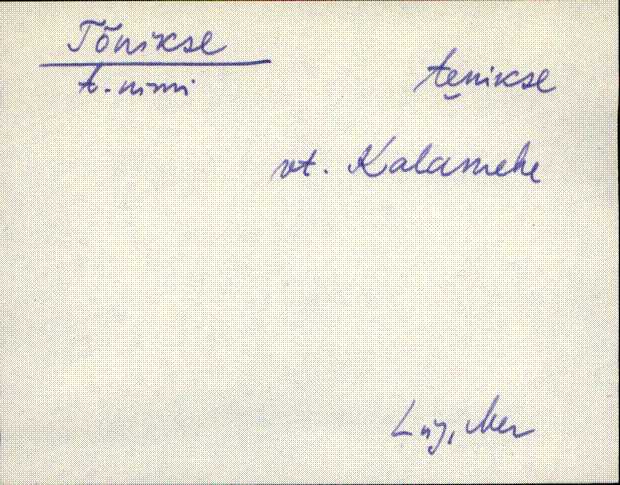 Tõnikse
t. nimi
te̮nikse
vt. Kalamehe
Lüg, Mer